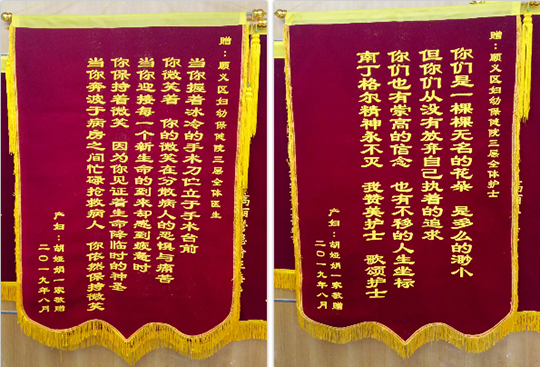 赠：顺义区妇幼保健院三届全体医生
当你握着冰冷的手术刀伫立于手术台前
你微笑着 你的微笑在分散病人的恐惧与痛苦
当你迎接每一个新生命的到来却感到疲惫时
你保持着微笑 因为你见证着生命降临时的神圣
当你奔波于病房之间忙碌抢救病人 你依然保持微笑
产妇：胡娅娟一家敬赠
二〇一九年八月
赠：顺义区妇幼保健院三届全体护士
你们是一棵棵无名的花朵 是多么的渺小
但你们从没有放弃自己执着的追求
你们也有崇高的信念 也有不移的人生坐标
南丁格尔精神永不灭 我赞美护士 歌颂护士
产妇：胡娅娟一家敬赠
二〇一九年八月